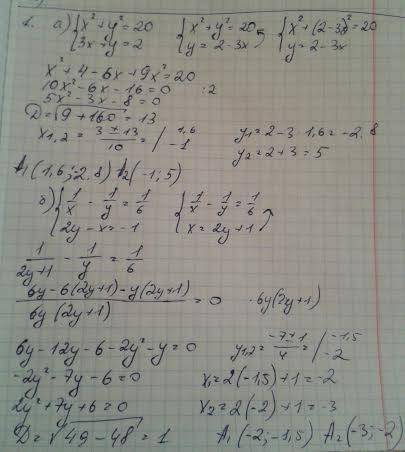 1. а) { x² + y² = 20 { x² + y² = 20 { x² + (2-3x)² = 20
3x + y = 2 y = 2 - 3x y = 2 - 3x
x² + 4 - 6x + 9x² = 20
10x² - 6x - 16 = 0 :2
5x² - 3x - 8 = 0
D = √9 + 160 = 13
x₁,₂ = (3 ± 13)/10 = / 1,6 y₁ = 2 - 3·1,6 = -2,8
-1 y₂ = 2 + 3 = 5
A₁(1,6; -2,8) A₂(-1; 5)
б) { 1/x - 1/y = 1/6 { 1/x - 1/y = 1/6
2y - x = -1 x = 2y + 1
1/(2y+1) - 1/y = 1/6
(6y - 6(2y+1) - y(2y+1))/(6y(2y+1)) = 0 ·6y(2y+1)
6y - 12y - 6 - 2y² - y = 0 y₁,₂ = (-7 ± 1)/4 = / -1,5
-2
-2y² - 7y - 6 = 0 x₁ = 2(-1,5) + 1 = -2
2y² + 7y + 6 = 0 x₂ = 2(-2) + 1 = -3
D = √49 - 48 = 1 A₁(-2; -1,5) A₂(-3; -2)